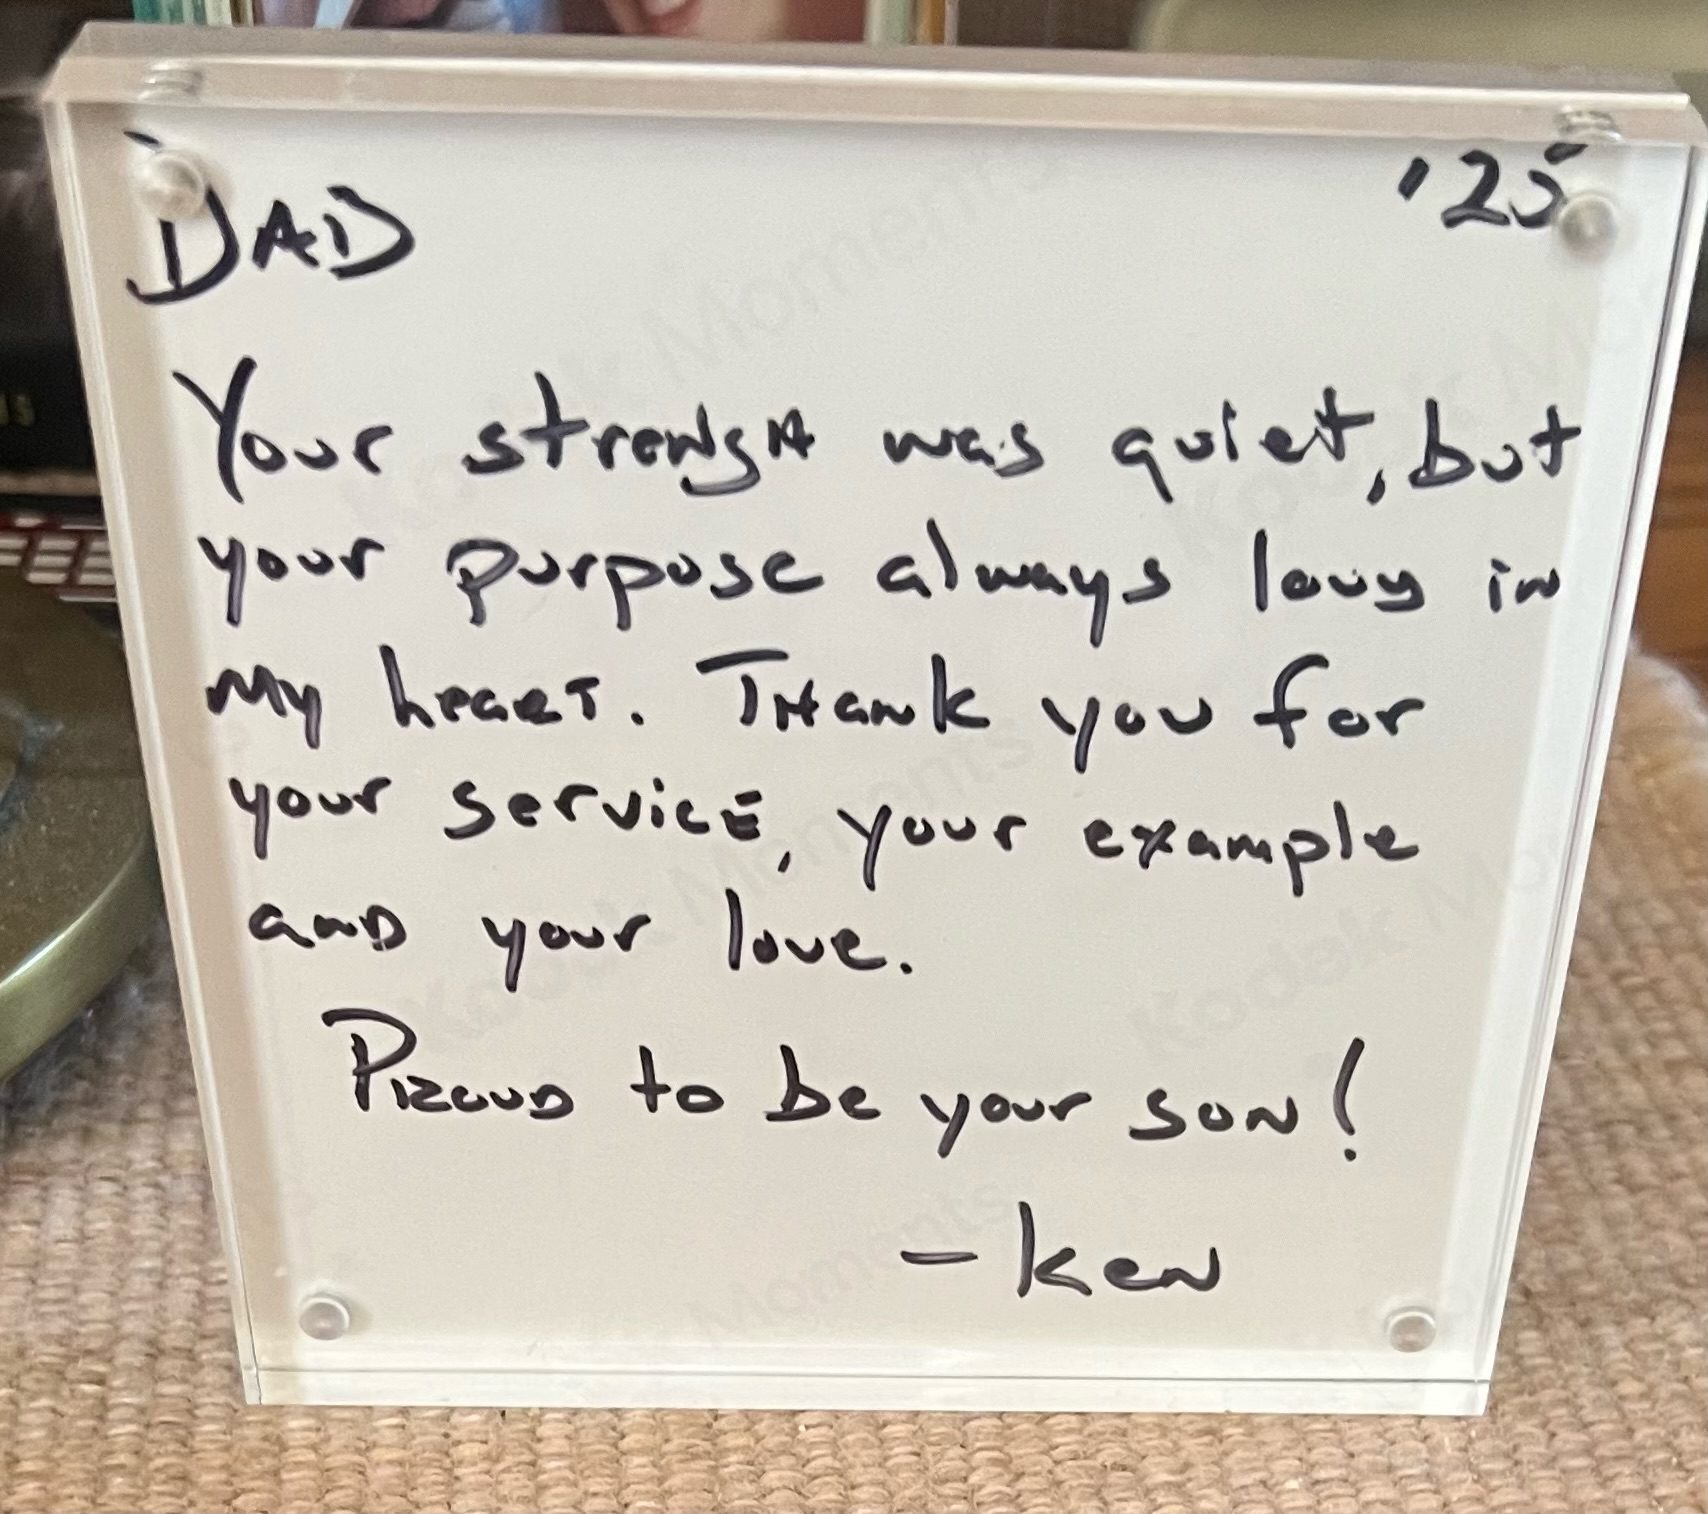 DAD '25
Your strength was quiet, but
your purpose always loud in
my heart. Thank you for
your service, your example
and your love.
Proud to be your son!
- Ken
Kodak Moments